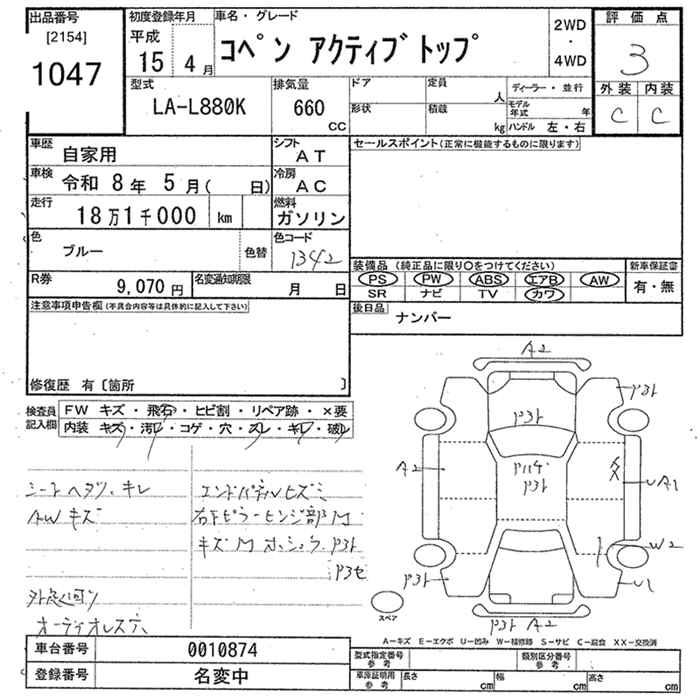 出品番号
[2154]
1047
初度登録年月
平成
15年 4月
車名・グレード
コペン アクティブトップ
2WD
・
4WD
評価点
3
外装 内装
C C
型式
LA-L880K
排気量
660
CC
ドア
定員
人
形状
積載
kg
ディーラー・並行
モデル年式 年
ハンドル 左・右
車歴
自家用
シフト
AT
車検
令和 8年 5月( 日)
冷房
AC
走行
18万1千000 km
燃料
ガソリン
色
ブルー
色替
色コード
1342
R券
9,070円
名変通知期限
月 日
セールスポイント(正常に機能するものに限ります)
装備品 (純正品に限り○をつけてください)
PS PW ABS エアB AW
SR ナビ TV カワ
新車保証書
有・無
後日品
ナンバー
注意事項申告欄(不具合内容等は具体的に記入して下さい)
修復歴 有〔箇所 〕
検査員記入欄
FW キズ・飛石・ヒビ割・リペア跡・×要
内装 キズ・汚レ・コゲ・穴・スレ・キレ・破レ
シートヘタリ、キレ
AWキズ
エンドパネルヒズミ
右下ピラーヒンジ部M
キズM
オーディオレス
A2
A2
A2
W2
U1
スペア
A-キズ E-エクボ U-凹み W-補修跡 S-サビ C-腐食 XX-交換済
車台番号
0010874
登録番号
名変中
型式指定番号
参考
類別区分番号
参考
車庫証明用
参考
長さ cm
幅 cm
高さ cm